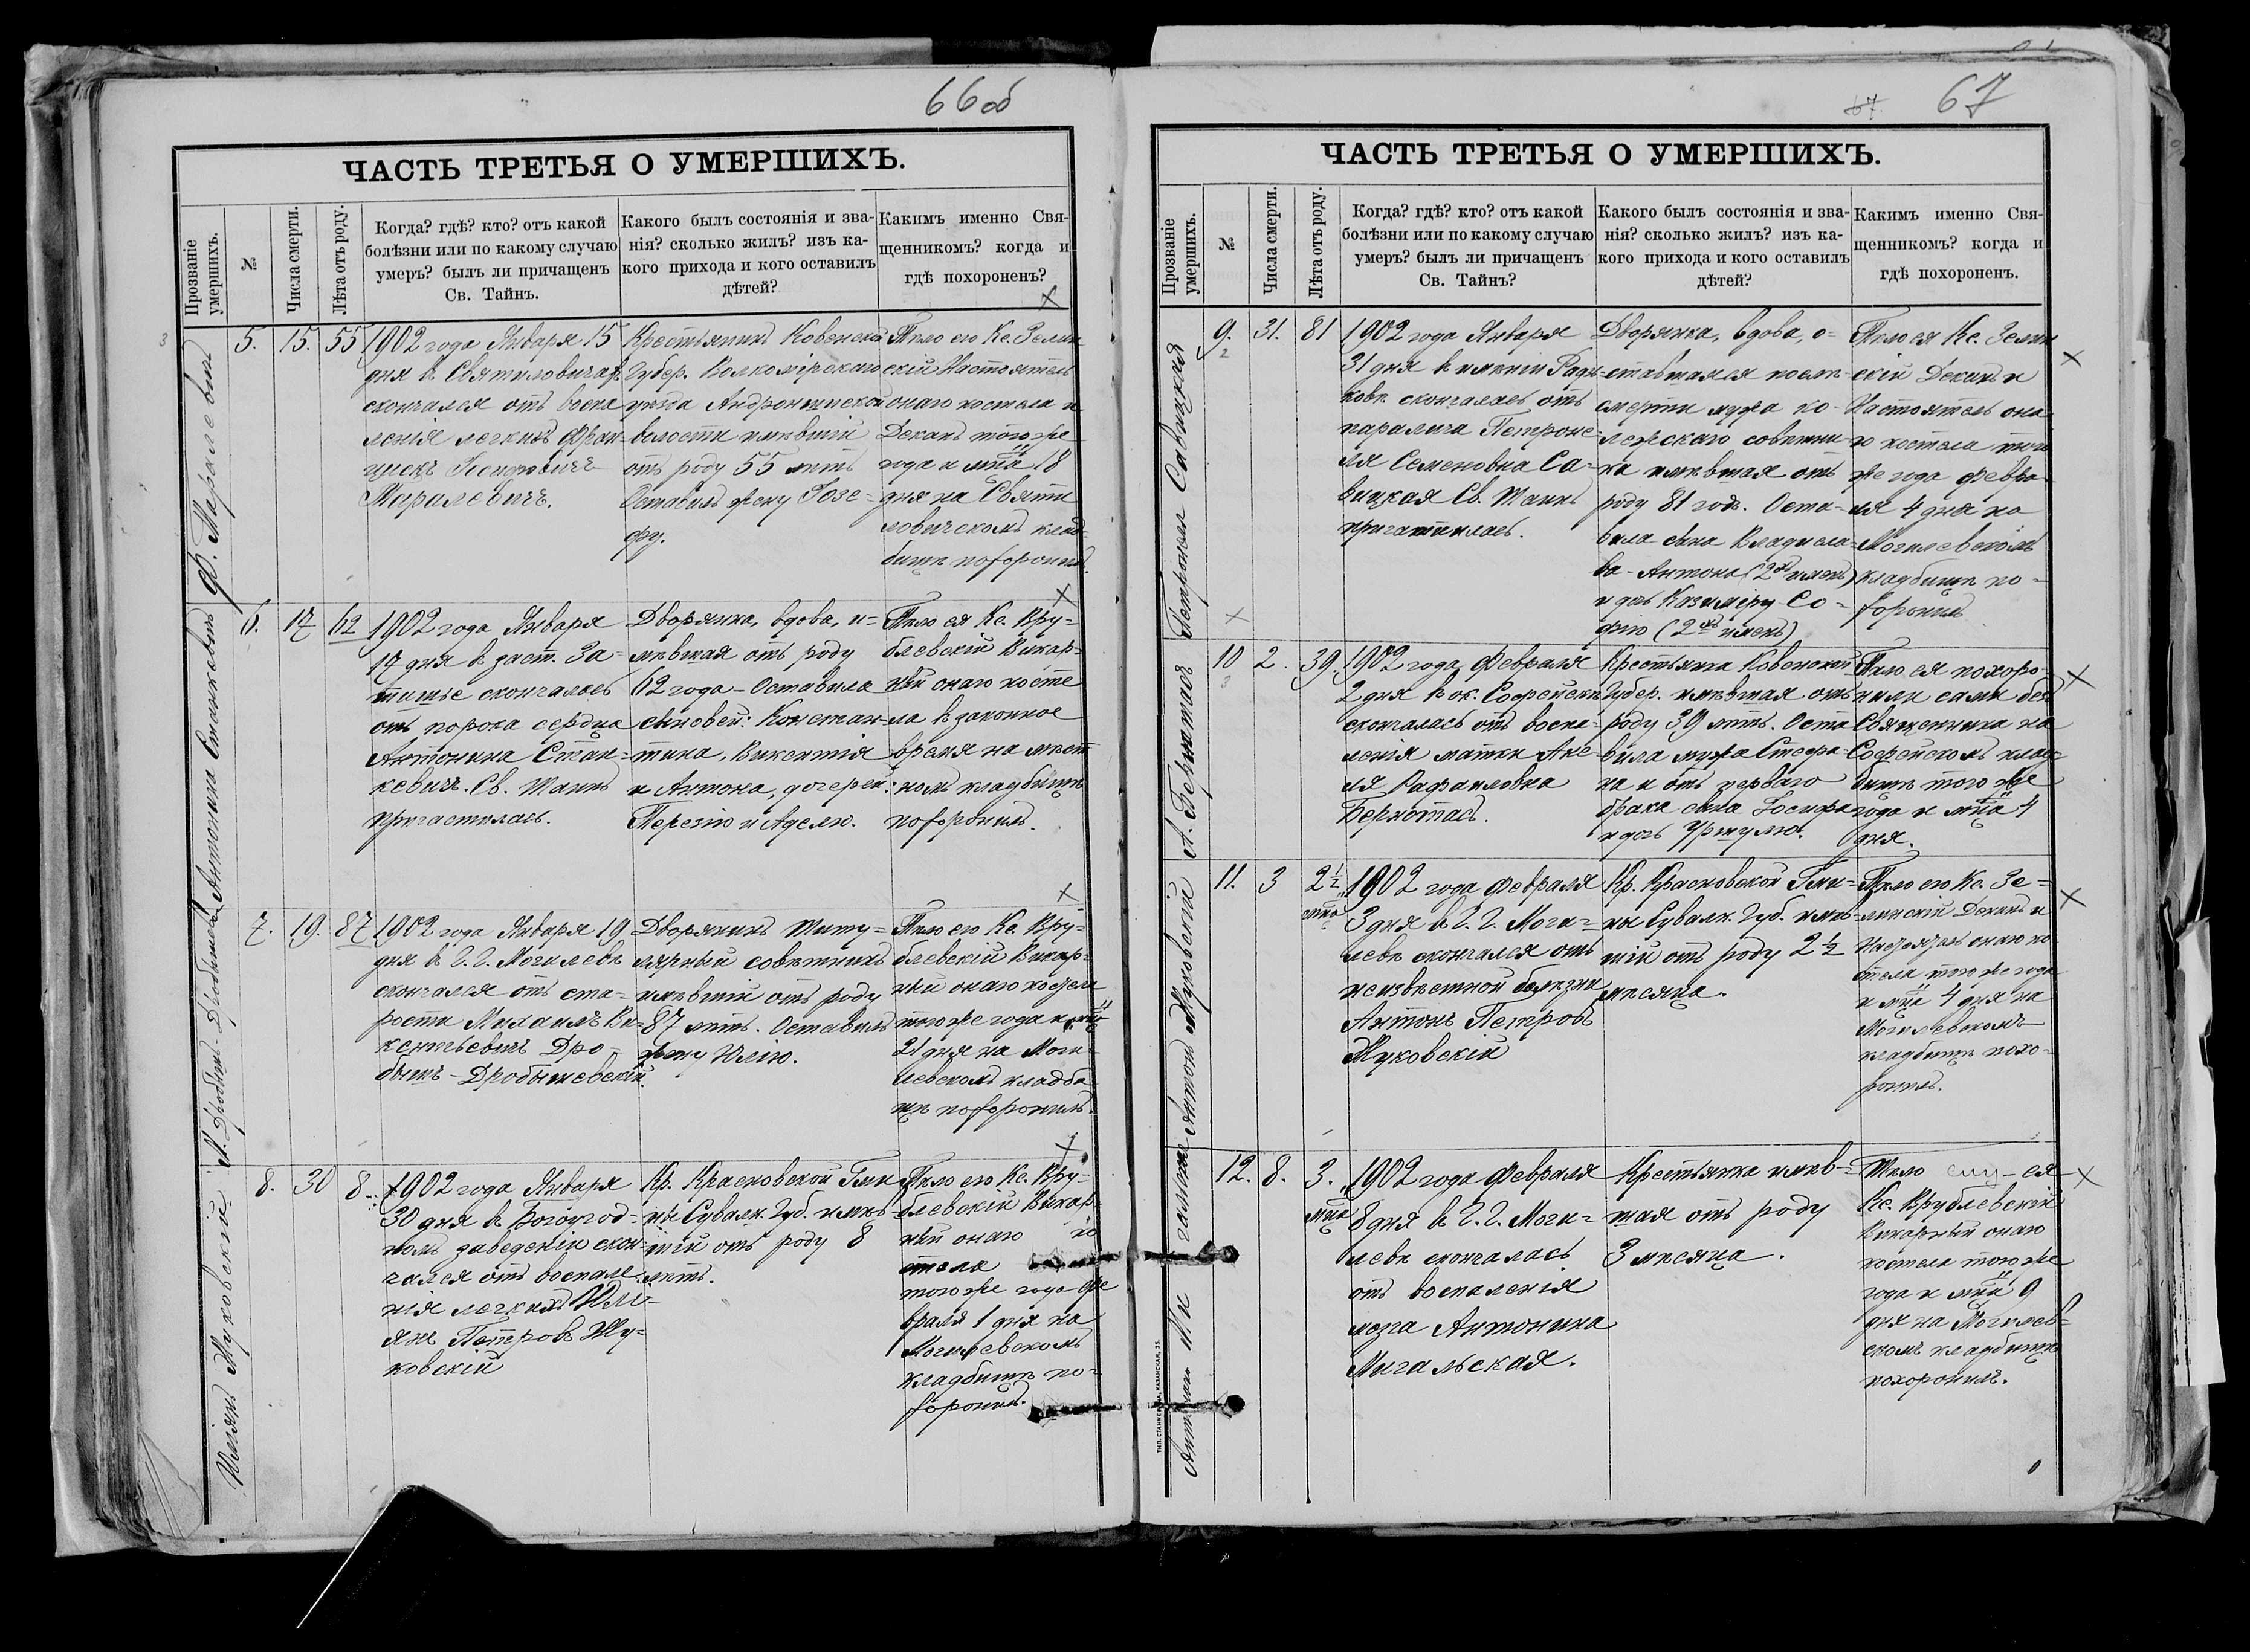 66 об
ЧАСТЬ ТРЕТЬЯ О УМЕРШИХЪ.
Прозваніе умершихъ.
№
Числа смерти.
Лѣта отъ роду.
Когда? гдѣ? кто? отъ какой
болѣзни или по какому случаю
умеръ? былъ ли причащенъ
Св. Тайнъ.
Какого былъ состоянія и зва-
нія? сколько жилъ? изъ ка-
кого прихода и кого оставилъ
дѣтей?
Какимъ именно Свя-
щенникомъ? когда и
гдѣ похороненъ?
5.
15.
55
1902 года Января 15
дня в Святиловичах
скончался отъ воспа
ленія легкихъ Фран-
цискъ Іосифовичъ
Мараlевичъ.
Крестьянинъ Ковенской
Губер. Волкомірскаго
уѣзда Андронишской
волости имѣвшій
отъ роду 55 лѣтъ
Оставилъ жену Іозе-
фу.
Тѣло его Кс. Зелин
скій Настоятель
онаго костела и
Деканъ того же
года и мца 18
дня на Святи
ловичскомъ клад-
бищѣ похоронилъ.
6.
17
62
1902 года Января
17 дня в заст. За-
тишье скончалась
отъ порока сердца
Антонина Стан-
кевичъ. Св. Таинъ
пригастилась.
Дворянка, вдова, и-
мѣвшая отъ роду
62 года - Оставила
сыновей: Констан-
тина, Викентія
и Антона, дочерей:
Терезію и Аделю.
Тѣло ея Кс. Вру-
блевскій Викар-
ный онаго косте
ла в законное
время на мѣст
номъ кладбищѣ
похоронилъ.
7.
19.
87
1902 года Января 19
дня в Г. Г. Могилевѣ
скончался отъ ста-
рости Михаилъ Ви-
кентьевичъ Дро-
бышъ - Дробышевскій.
Дворянинъ Титу-
лярный совѣтникъ
имѣвшій отъ роду
87 лѣтъ. Оставилъ
жену Юлію.
Тѣло его Кс. Вру-
блевскій Викар-
ный онаго костела
того же года и мца
21 дня на Моги-
левскомъ кладби
щѣ похоронилъ.
8.
30
8
1902 года Января
30 дня в Богоугод-
номъ заведеніи скон-
чался отъ воспале-
нія легкихъ Юли-
янъ Петровъ Жу-
ковскій
Кр. Красновской Гми
ны Сувалк. Губ. имѣв-
шій отъ роду 8
лѣтъ.
Тѣло его Кс. Вру-
блевскій Викар-
ный онаго ко
стела
того же года Фе
враля 1 дня на
Могилевскомъ
кладбищѣ по-
хоронилъ.
Ф. Маралевичъ
Антонина Станкевичъ
М. Дробышъ-Дробышевскій
Юліянъ Жуковскій
67.
67
ЧАСТЬ ТРЕТЬЯ О УМЕРШИХЪ.
Прозваніе умершихъ.
№
Числа смерти.
Лѣта отъ роду.
Когда? гдѣ? кто? отъ какой
болѣзни или по какому случаю
умеръ? былъ ли причащенъ
Св. Тайнъ?
Какого былъ состоянія и зва-
нія? сколько жилъ? изъ ка-
кого прихода и кого оставилъ
дѣтей?
Какимъ именно Свя-
щенникомъ? когда и
гдѣ похороненъ.
9.
2
31.
81
1902 года Января
31 дня в имѣніи Рады-
ковѣ скончалась отъ
паралича Петроне-
ля Семеновна Са-
вицкая Св. Таинъ
пригастилась.
Дворянка, вдова, о-
ставшаяся послѣ
смерти мужа ко-
лежскаго совѣтни-
ка имѣвшая отъ
роду 81 годъ. Оста-
вила сына Владисла-
ва - Антона (2хъ именъ)
и дочь Казиміру Со-
фію (2хъ именъ)
Тѣло ея Кс. Зелин
скій Деканъ и
Настоятель она
го костела того
же года Февра-
ля 4 дня на
Могилевскомъ
кладбищѣ по-
хоронилъ
10
3
2.
39.
1902 года Февраля
2 дня в ок. Софейскѣ
скончалась отъ воспа-
ленія матки Ане-
ля Рафаиловна
Бернотасъ.
Крестьянка Ковенской
Губер. имѣвшая отъ
роду 39 лѣтъ. Оста
вила мужа Стефа-
на и отъ перваго
брака сына Іосифа
и дочь Уршулю.
Тѣло ея похоро-
нили сами безъ
Священника на
Софейскомъ клад-
бищѣ того же
года и мца 4
дня.
11.
3
2 1/2
мца
1902 года Февраля
3 дня в Г. Г. Моги-
левѣ скончался отъ
неизвѣстной болѣзни
Антонъ Петровъ
Жуковскій
Кр. Красновской Гми-
ны Сувалк. Губ. имѣв-
шій отъ роду 2 1/2
мѣсяца.
Тѣло его Кс. Зе-
линскій Деканъ и
Настоятель онаго ко
стела того же года
и мца 4 дня на
Могилевскомъ
кладбищѣ похо-
ронилъ.
12.
8.
3.
мца
1902 года Февраля
8 дня в Г. Г. Моги-
левѣ скончалась
отъ воспаленія
мозга Антонина
Мигальская.
Крестьянка имѣв-
шая отъ роду
3 мѣсяца.
Тѣло ея
Кс. Врублевскій
Викарный онаго
костела того же
года и мца 9
дня на Могилев-
скомъ кладбищѣ
похоронилъ.
Петронеля Савицкая
А. Бернотасъ
Антонъ Жуковскій
ТИП. СТАНКЕВИЧА, КАЗАНСКАЯ, 33.